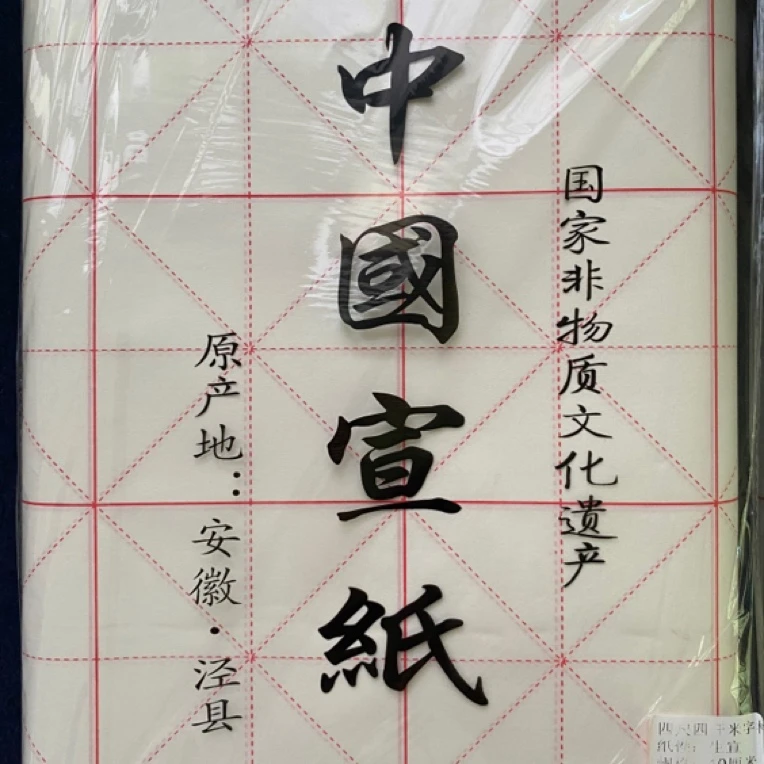 国家非物质文化遗产
中國宣紙
原产地：安徽·泾县
四尺四 米字
生宣
厘米